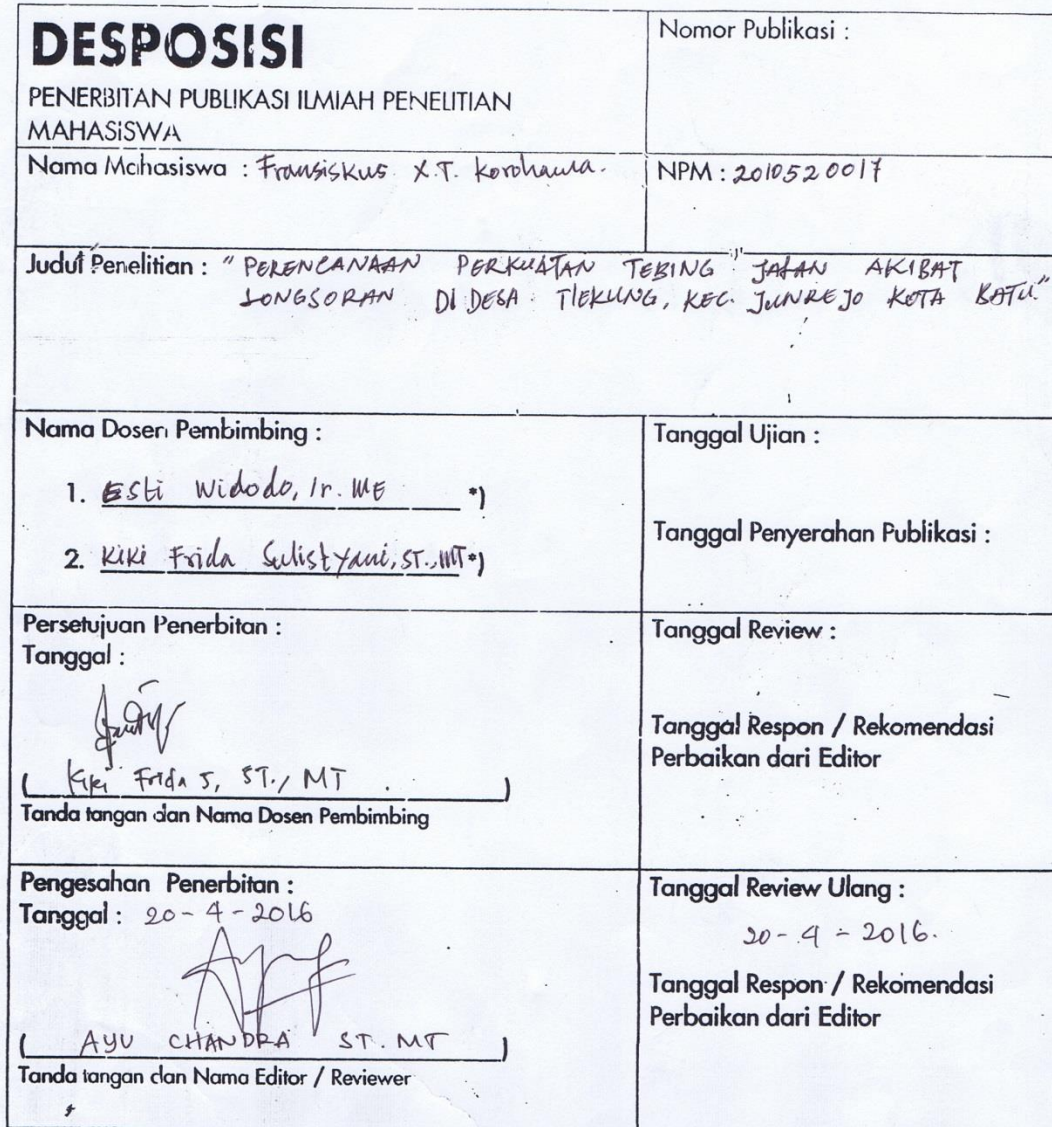 DESPOSISI
PENERBITAN PUBLIKASI ILMIAH PENELITIAN
MAHASISWA
Nomor Publikasi :
Nama Mahasiswa : Fransiskus X.T. Korohama.
NPM : 2010520017
Judul Penelitian : " PERENCANAAN PERKUATAN TEBING JALAN AKIBAT
LONGSORAN DI DESA TLEKUNG, KEC. JUNREJO KOTA BATU."
Nama Dosen Pembimbing :
1. Esti Widodo, Ir. ME *)
2. Kiki Frida Sulistyani, ST., MT *)
Tanggal Ujian :
Tanggal Penyerahan Publikasi :
Persetujuan Penerbitan :
Tanggal :
( Kiki Frida S, ST., MT )
Tanda tangan dan Nama Dosen Pembimbing
Tanggal Review :
Tanggal Respon / Rekomendasi
Perbaikan dari Editor
Pengesahan Penerbitan :
Tanggal : 20 - 4 - 2016
( AYU CHANDRA ST. MT )
Tanda tangan dan Nama Editor / Reviewer
Tanggal Review Ulang :
20 - 4 - 2016.
Tanggal Respon / Rekomendasi
Perbaikan dari Editor